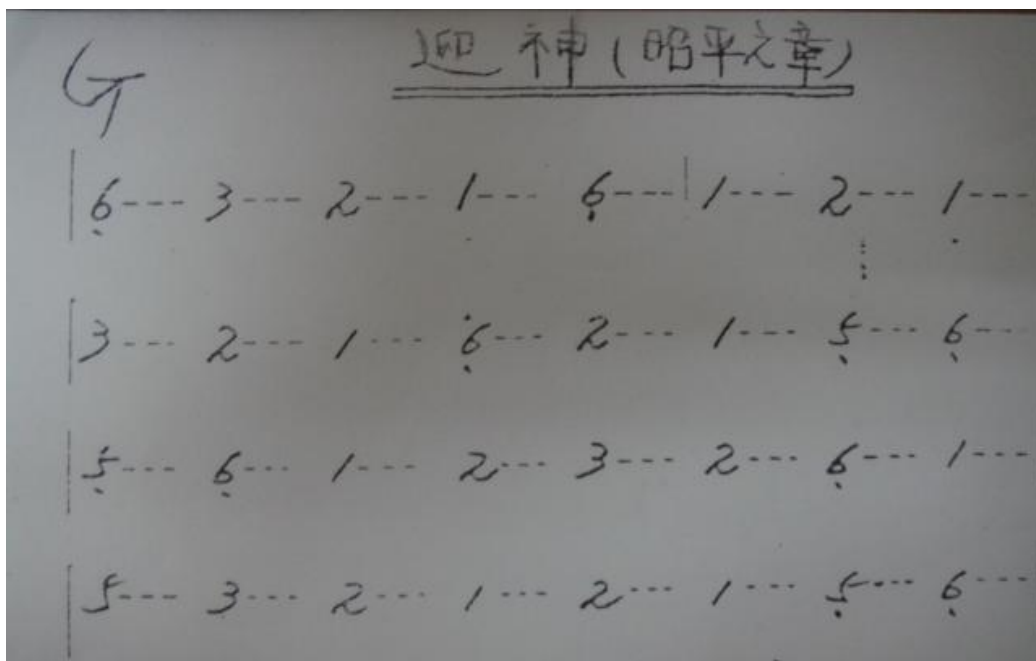 G 迎神(昭平之章)
|6̣--- 3--- 2--- 1--- 6̣---|1--- 2--- 1---
|3--- 2--- 1--- 6̣--- 2--- 1--- 5̣--- 6̣---
|5̣--- 6̣--- 1--- 2--- 3--- 2--- 6̣--- 1---
|5--- 3--- 2--- 1--- 2--- 1--- 5̣--- 6̣---